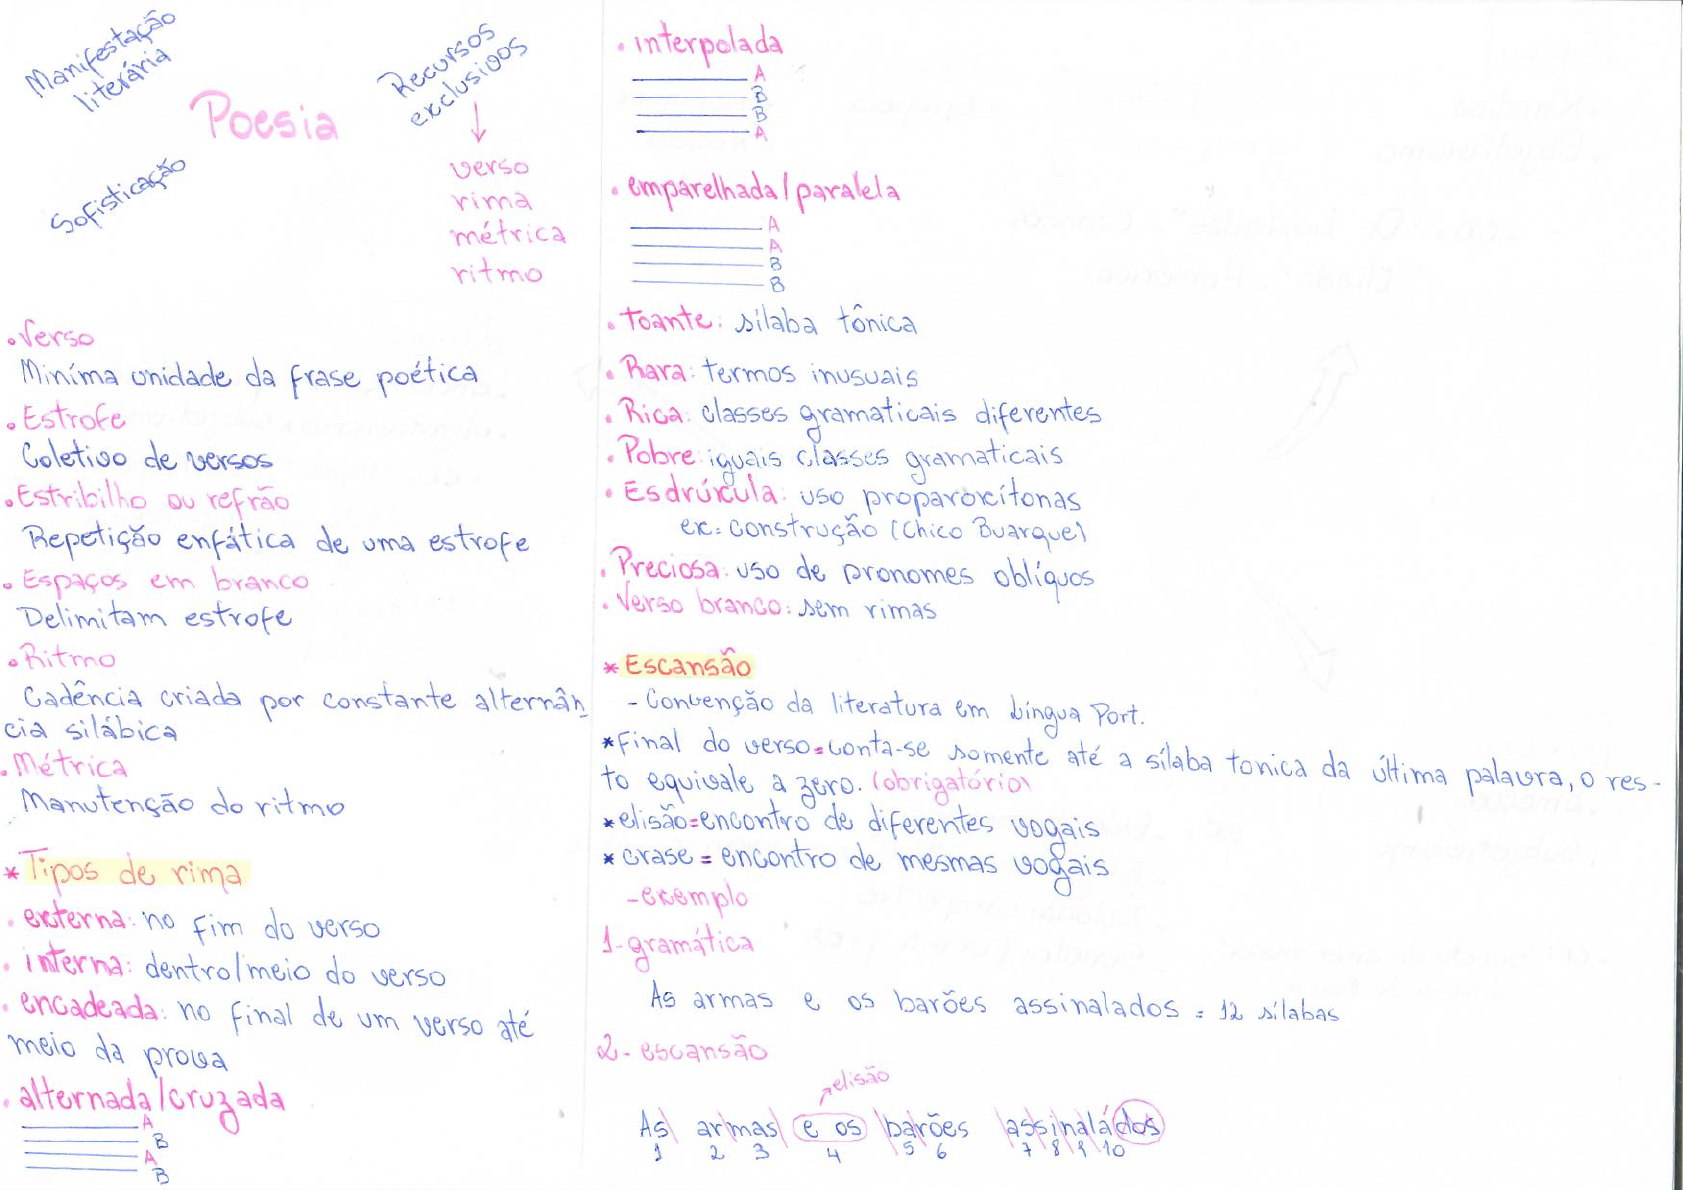 Manifestação
literária
Poesia
Sofisticação
Recursos
exclusivos
verso
rima
métrica
ritmo
• Verso
Miníma unidade da frase poética
• Estrofe
Coletivo de versos
• Estribilho ou refrão
Repetição enfática de uma estrofe
• Espaços em branco
Delimitam estrofe
• Ritmo
Cadência criada por constante alternân
cia silábica
• Métrica
Manutenção do ritmo
* Tipos de rima
• externa: no fim do verso
• interna: dentro/meio do verso
• encadeada: no final de um verso até
meio da prova
• alternada/cruzada
A
B
A
B
• interpolada
A
B
B
A
• emparelhada/paralela
A
A
B
B
• Toante: sílaba tônica
• Rara: termos inusuais
• Rica: classes gramaticais diferentes
• Pobre: iguais classes gramaticais
• Esdrúxula: uso proparoxítonas
ex: construção (Chico Buarque)
• Preciosa: uso de pronomes oblíquos
• Verso branco: sem rimas
* Escansão
- Convenção da literatura em Língua Port.
* Final do verso = conta-se somente até a sílaba tonica da última palavra, o res-
to equivale a zero. (obrigatório)
* elisão = encontro de diferentes vogais
* crase = encontro de mesmas vogais
- exemplo
1- gramática
As armas e os barões assinalados = 12 sílabas
2- escansão
elisão
As| ar|mas| e os |ba|rões |as|si|na|lá|dos
1 2 3 4 5 6 7 8 9 10